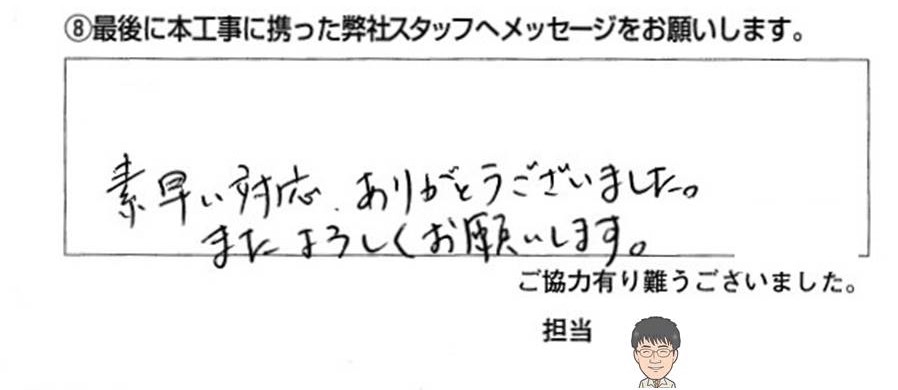 ⑧最後に本工事に携った弊社スタッフへメッセージをお願いします。
素早い対応、ありがとうございました。
またよろしくお願いします。
ご協力有り難うございました。
担当